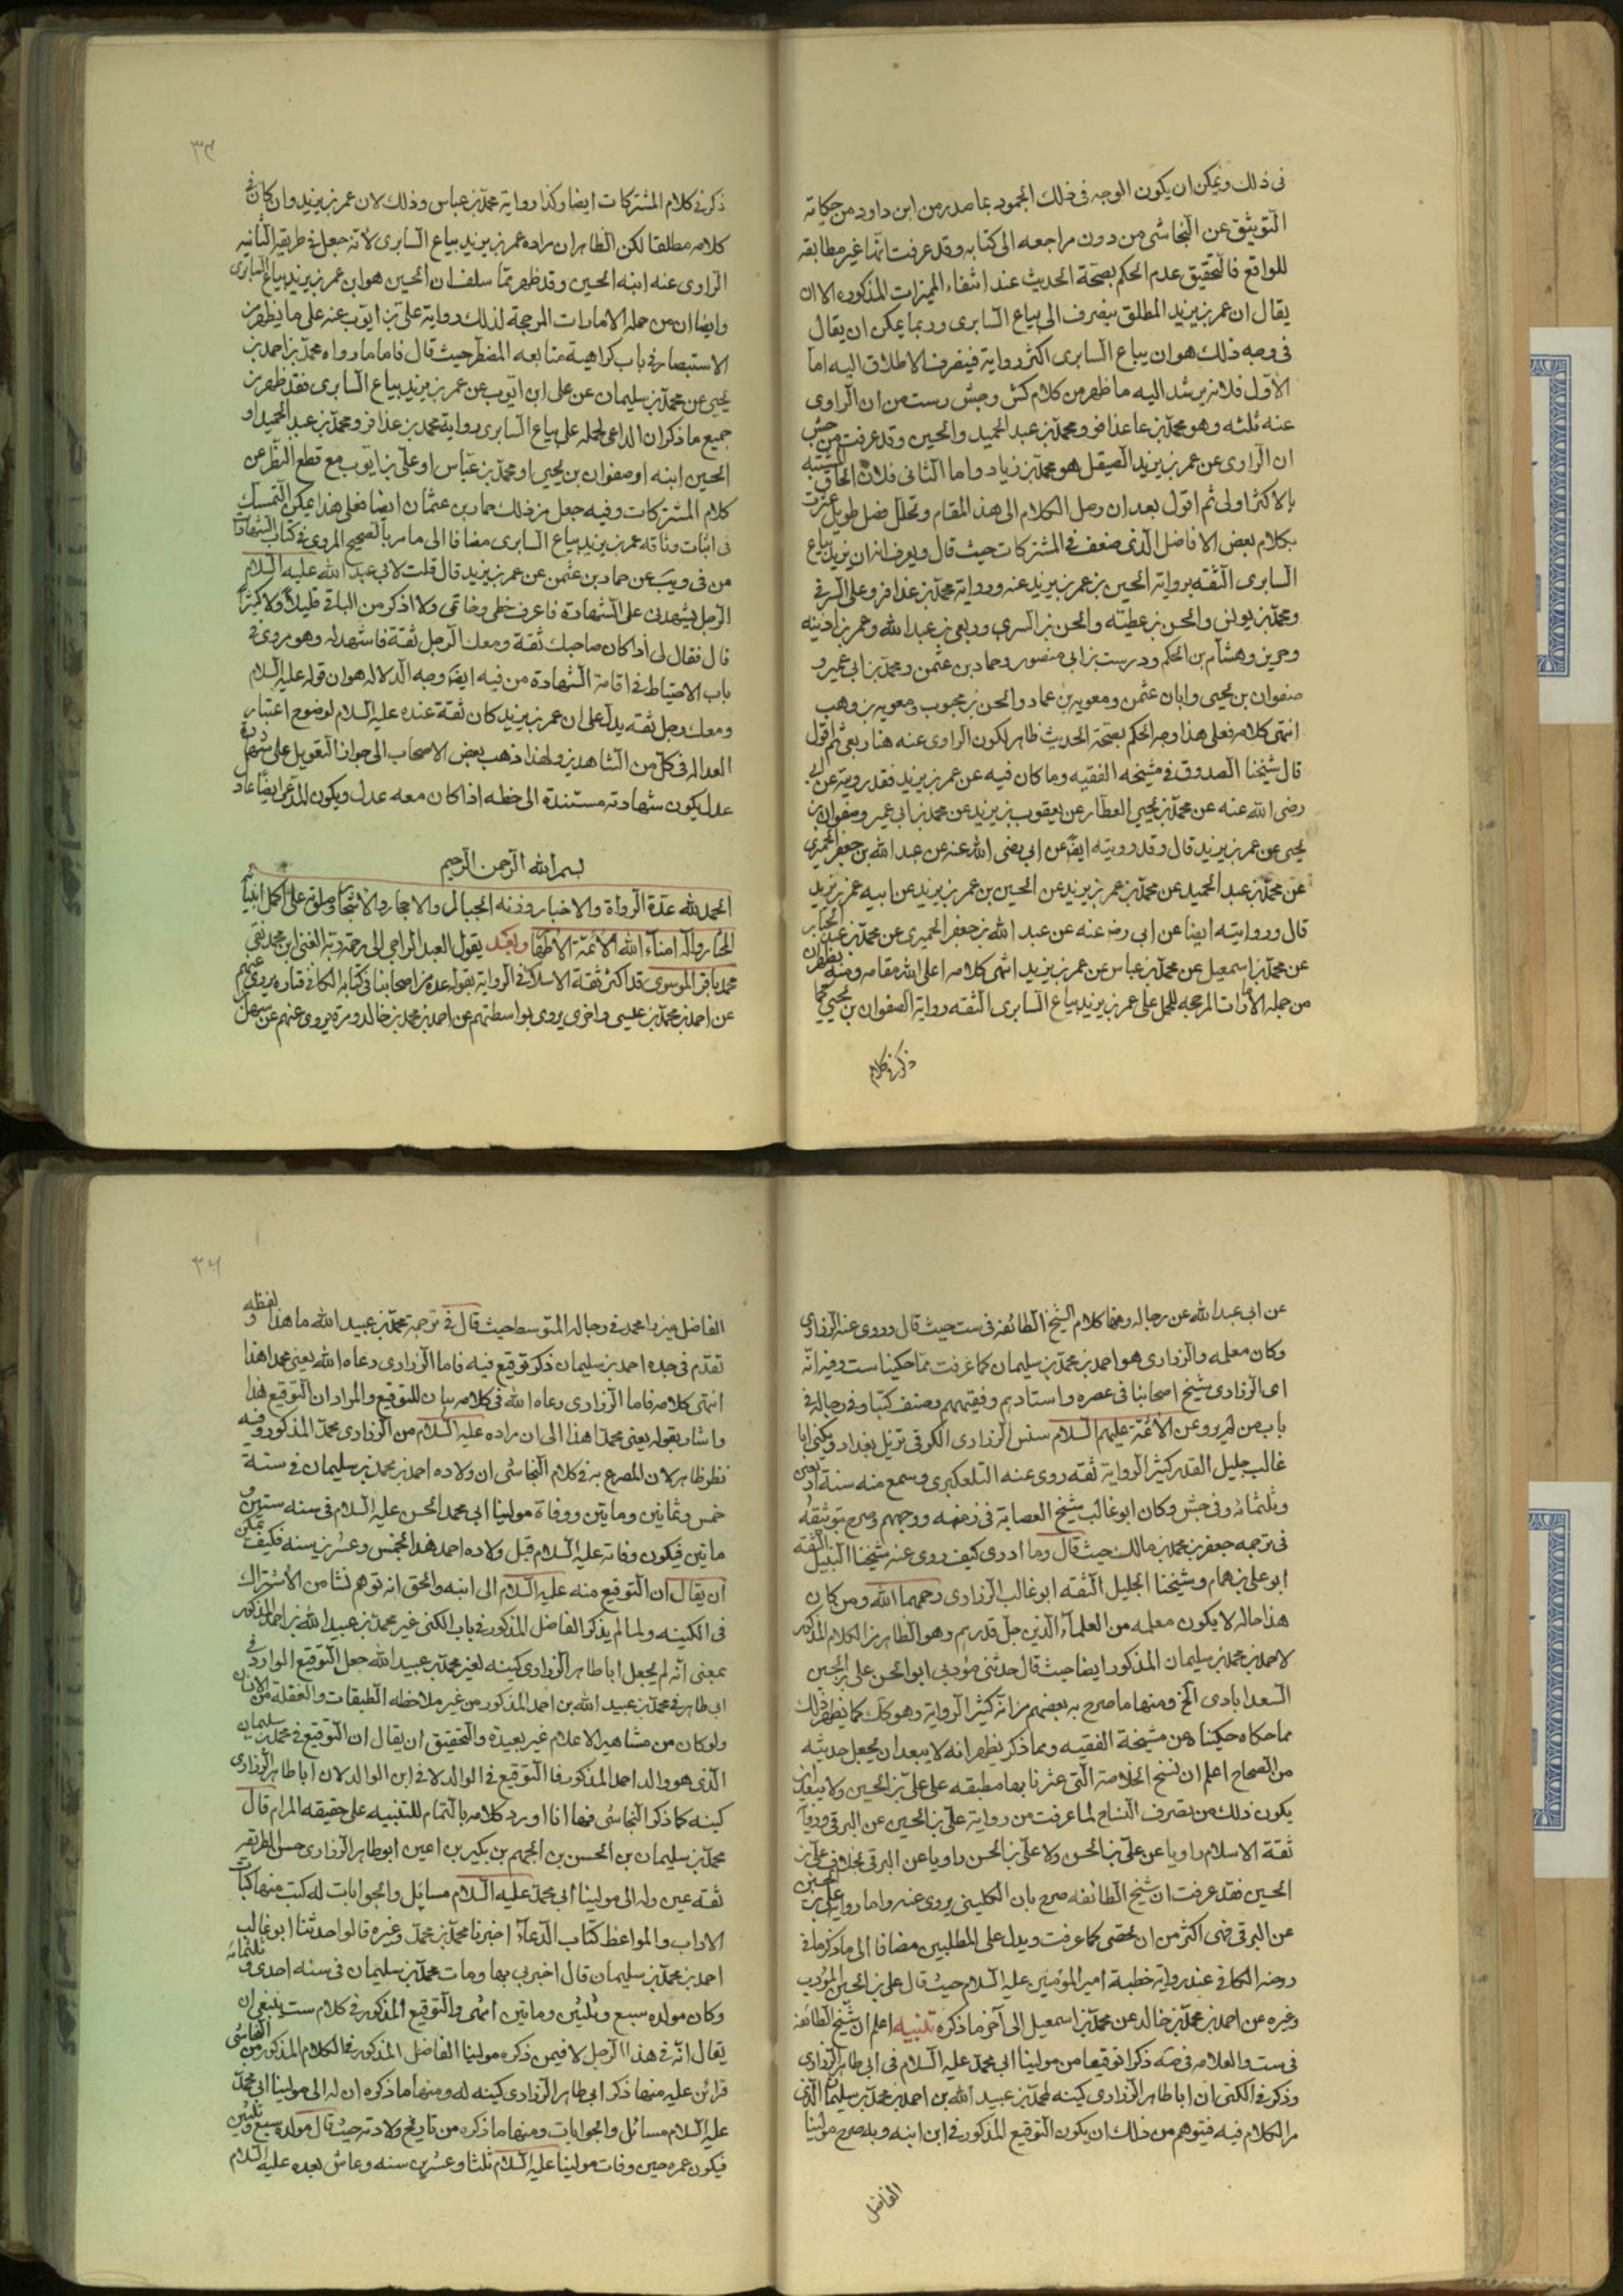 فى ذلك ويمكن ان يكون الوجه فى ذلك الجمود بما صدر من ابن داود من حكايته
التوثيق عن النجاشى من دون مراجعه الى كتابه وقد عرفت انها غير مطابقه
للواقع فالتحقيق عدم الحكم بصحة الحديث عند انتفاء المميزات المذكوره الا ان
يقال ان عمر بن يزيد المطلق ينصرف الى بياع السابرى وربما يمكن ان يقال
فى وجه ذلك هو ان بياع السابرى اكثر رواية فينصرف الاطلاق اليه اما
الاول فلانه يرشد اليه ما ظهر من كلام كش وجش وست من ان الراوى
عنه ثلثه وهو محمد بن عذافر ومحمد بن عبد الحميد والحسين وقد عرفت من جش
ان الراوى عن عمر بن يزيد الصيقل هو محمد بن زياد واما الثانى فلان الحاق المشتبه
بالاكثر اولى ثم اقول بعد ان وصل الكلام الى هذ المقام وتخلل فصل طويل عثرت
بكلام بعض الافاضل الذى صنف فى المشتركات حيث قال ويعرف انه ابن يزيد بياع
السابرى الثقه برواية الحسين بن عمر بن يزيد عنه ورواية محمد بن عذافر وعلى الصيرفى
ومحمد بن يونس والحسن بن عطيته والحسن بن السرى وربعى بن عبد الله وعمر بن اذينه
وحريز وهشام بن الحكم ودرست بن ابى منصور وحماد بن عثمن ومحمد بن ابى عمير و
صفوان بن يحيى وابان عثمن ومعويه بن عمار والحسن بن محبوب ومعويه بن وهب
انتهى كلامه فعلى هذا وجه الحكم بصحة الحديث ظاهر لكون الراوى عنه هنا ربعى ثم اقول
قال شيخنا الصدوق فى مشيخه الفقيه وما كان فيه عن عمر بن يزيد فقد رويته عن ابى
رضى الله عنه عن محمد بن يحيى العطار عن يعقوب بن يزيد عن محمد بن ابى عمير وصفوان بن
يحيى عن عمر بن يزيد قال وقد رويته ايضا عن ابى رضى الله عنه عن عبد الله بن جعفر الحميرى
عن محمد بن عبد الحميد عن محمد بن عمر بن يزيد عن الحسين بن عمر بن يزيد عن ابيه عمر بن يزيد
قال ورواييته ايضا عن ابى رضه عنه عن عبد الله بن جعفر الحميرى عن محمد بن عبد الجبار
عن محمد بن اسمعيل عن محمد بن عباس عن عمر بن يزيد انتهى كلامه اعلى الله مقامه ومنه يظهر ان
من جمله الامارات المرجحه للحمل على عمر بن يزيد بياع السابرى الثقه رواية الصفوان بن يحيى كما
ذكر فى كلام
٣٤
ذكر فى كلام المشتركات ايضا وكذا رواية محمد بن عباس وذلك لان عمر بن يزيد وان كان فى
كلامه مطلقا لكن الظاهر ان مراده عمر بن يزيد بياع السابرى لانه جعل فى طريقه الثانيه
الراوى عنه ابنه الحسين وقد ظهر مما سلف ان الحسين هو ابن عمر بن يزيد بياع السابرى
وايضا ان من جمله الامارات المرجحة لذلك رواية على بن ايوب عنه على ما يظهر من
الاستبصار فى باب كراهية متابعه المضطر حيث قال فاما ما رواه محمد بن احمد بن
يحيى عن محمد بن سليمان عن على ابن ايوب عن عمر بن يزيد بياع السابرى فقد ظهر من
جميع ما ذكر ان الداعى لحمله على بياع السابرى رواية محمد بن عذافر ومحمد بن عبد الحميد او
الحسين ابنه او صفوان بن يحيى او محمد بن عباس او على بن ايوب مع قطع النظر عن
كلام المشتركات وفيه جعل من ذلك حماد بن عثمان ايضا فعلى هذا يمكن التمسك
فى اثبات وثاقه عمر بن يزيد بياع السابرى مضافا الى ما مر بالصحيح المروى فى كتاب الشهادات
من فى ويب عن حماد بن عثمن عن عمر بن يزيد قال قلت لابى عبد الله عليه السلام
الرجل يشهدنى على الشهادة فاعرف خطى وخاتمى ولا اذكر من الباقى قليلا ولا كثيرا
قال فقال لى اذا كان صاحبك ثقة ومعك الرجل ثقة فاشهد له وهو مروى فى
باب الاحتياط فى اقامة الشهادة من فيه ايضا وجه الدلاله هو ان قوله عليه السلام
ومعك رجل ثقه يدل على ان عمر بن يزيد كان ثقة عنده عليه السلام لوضوح اعتبار
العداله فى كل من الشاهدين ولهذا ذهب بعض الاصحاب الى جواز التعويل على شهادة
عدل يكون شهادته مستندة الى خطه اذا كان معه عدل ويكون المدعى ايضا عادلا
بسم الله الرحمن الرحيم
الحمد لله عدة الرواة والاخبار وزنه الجبال والاحجار والاشجار وصلوته على اكمل انبيائه
المختار واله امناء الله الائمة الاطهار وبعد يقول العبد الراجى الى رحمة ربه الغنى ابن محمد نقى
محمد باقر الموسوى قد اكثر ثقة الاسلام فى الرواية بقوله عدة من اصحابنا فى كتابه الكافى فتارة يروى عنهم
عن احمد بن محمد بن عيسى واخرى يروى بواسطتهم عن احمد بن محمد بن خالد ومرة يروى عنهم عن سهل
عن ابى عبد الله عن رجاله ومنها كلام الشيخ الطائفه فى ست حيث قال وروى عنه الزرارى
وكان معلمه والزرارى هو احمد بن محمد بن سليمان كما عرفت مما حكينا ست وفيه انه
اى الزرارى شيخ اصحابنا فى عصره واستادهم وفقيههم وصنف كتبا وفى رجاله فى
باب من لم يرو عن الائمة عليهم السلام الزرارى الكوفى نزيل بغداد ويكنى ابا
غالب جليل القدر كثير الرواية ثقه روى عنه التلعكبرى وسمع منه سنة اربعين
وثلثمائه وفى جش وكان ابو غالب شيخ العصابة فى زمنه ووجههم وصرح بتوثيقه
فى ترجمه جعفر بن محمد بن مالك حيث قال وما ادرى كيف روى عنه شيخنا النبيل الثقه
ابو على بن همام وشيخنا الجليل الثقه ابو غالب الزرارى رحمهما الله ومن كان
هذا حاله لا يكون معلمه من العلماء الذين جل قدرهم وهو الظاهر من الكلام المذكور
لاحمد بن محمد بن سليمان المذكور ايضا حيث قال حدثنى مؤدبى ابو الحسن على بن الحسين
السعدابادى الخ ومنها ما صرح به بعضهم من انه كثير الرواية وهو كك كما يظهر لك
مما حكاه حكيناه عن مشيخة الفقيه ومما ذكر يظهر انه لا يبعد ان يجعل حديثه
من الصحاح اعلم ان نسخ الخلاصة التى عثرنا بها مطبقه على على بن الحسين ولا يبعد ان
يكون ذلك من تصرف النساخ لما عرفت من رواية على بن الحسين عن البرقى
ثقة الاسلام راويا عن على بن الحسن ولا على بن الحسن راويا عن البرقى بخلاف على بن
الحسين فقد عرفت ان شيخ الطائفه صرح بان الكلينى يروى عنه واما رواية على بن الحسين
عن البرقى فهى اكثر من ان تحصى كما عرفت ويدل على المطلبين مضافا الى ما ذكر ما فى
روضه الكافى عند رواية خطبة امير المؤمنين عليه السلام حيث قال على بن الحسين المؤدب
وغيره عن احمد بن محمد بن خالد عن محمد بن اسمعيل الى آخر ما ذكره تنبيه اعلم ان شيخ الطائفه
فى ست والعلامه فى صه ذكرا توقيعا من مولينا ابى محمد عليه السلام فى ابى طاهر الزرارى
وذكر فى الكنى ان ابا طاهر الزرارى كنيته لمحمد بن عبيد الله بن احمد بن محمد بن سليمان الذى
مر الكلام فيه فيتوهم من ذلك ان يكون التوقيع المذكور فى ابن ابنه وبه صرح مولينا
الفاضل
٣٦
الفاضل ميرزا محمد فى رجاله المتوسط حيث قال فى ترجمة محمد بن عبيد الله ما هذا لفظه و
تقدم فى جده احمد بن سليمان ذكر توقيع فيه فاما الزرارى رعاه الله يعنى محمدا هذا
انتهى كلامه فاما الزرارى رعاه الله فى كلامه بيان للتوقيع والمراد ان التوقيع هذا
واشار بقوله يعنى محمدا هذا الى ان مراده عليه السلام من الزرارى محمد المذكور وفيه
نظر ظاهر لان المصرح به فى كلام النجاشى ان ولاده احمد بن محمد بن سليمان فى سنة
خمس وثمانين ومايتين ووفاة مولينا ابى محمد الحسن عليه السلام فى سنه ستين و
مايتين فيكون وفاته عليه السلام قبل ولاده احمد هذا بخمس وعشرين سنه فكيف يمكن
ان يقال ان التوقيع منه عليه السلام الى ابنه والحق انه توهم نشا من الاشتراك
فى الكنيه ولما لم يذكر الفاضل المذكور فى باب الكنى غير محمد بن عبيد الله بن احمد المذكور
بمعنى انه لم يجعل ابا طاهر الزرارى كنيه لغير محمد بن عبيد الله جعل التوقيع الوارد فى
ابى طاهر فى محمد بن عبيد الله بن احمد المذكور من غير ملاحظه الطبقات والغفلة من الانسان
ولو كان من مشاهير الاعلام غير بعيدة والتحقيق ان يقال ان التوقيع فى محمد بن سليمان
الذى هو والد احمد المذكور فالتوقيع فى الوالد لا فى ابن الوالد لان ابا طاهر الزرارى
كنيه كما ذكر النجاشى فها انا اورد كلامه بالتمام للتنبيه على حقيقه المرام قال
محمد بن سليمان بن الحسن بن الجهم بن بكير بن اعين ابو طاهر الزرارى حسن الطريقه
ثقه عين وله الى مولينا ابى محمد عليه السلام مسائل والجوابات له كتب منها كتاب
الاداب والمواعظ كتاب الدعاء اخبرنا محمد بن محمد وغيره قالوا حدثنا ابو غالب
احمد بن محمد بن سليمان قال اخبرنى بها ومات محمد بن سليمان فى سنه احدى وثلثمائه
وكان مولده سبع وثلثين ومايتين انتهى والتوقيع المذكور فى كلام ست ينبغى ان
يقال انه فى هذا الرجل لا فيمن ذكره مولينا الفاضل المذكور فى الكلام المذكور من النجاشى
قرائن عليه منها ذكر ابى طاهر الزرارى كنيه له ومنها ما ذكره ان له الى مولينا ابى محمد
عليه السلام مسائل والجوابات ومنها ما ذكره من تاريخ ولادته حيث قال مولده سبع وثلثين
فيكون عمره حين وفات مولينا عليه السلام ثلثا وعشرين سنه وعاش بعده عليه السلام